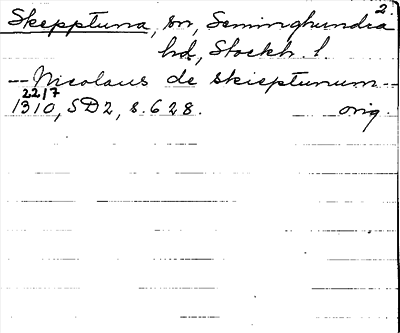 2.
Skepptuna, sn, Seminghundra
hd, Stockh. l.
-- Nicolaus de Skieptunum --
22/7
1310, SD2, s. 628. orig.